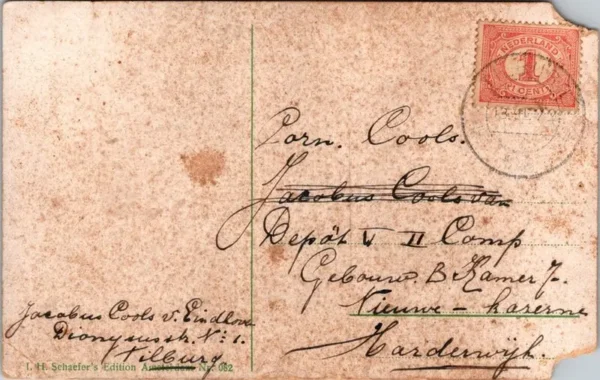 NEDERLAND
1
CENT
Corn. Cools.
Jacobus Cools van
Depôt V II Comp
Gebouw. B Kamer 7.
Nieuwe - kazerne
Harderwijk.
Jacobus Cools v. Eindhove
Dionysusstr. No 1.
Tilburg
I. H. Schaefer's Edition Amsterdam Nr. 082